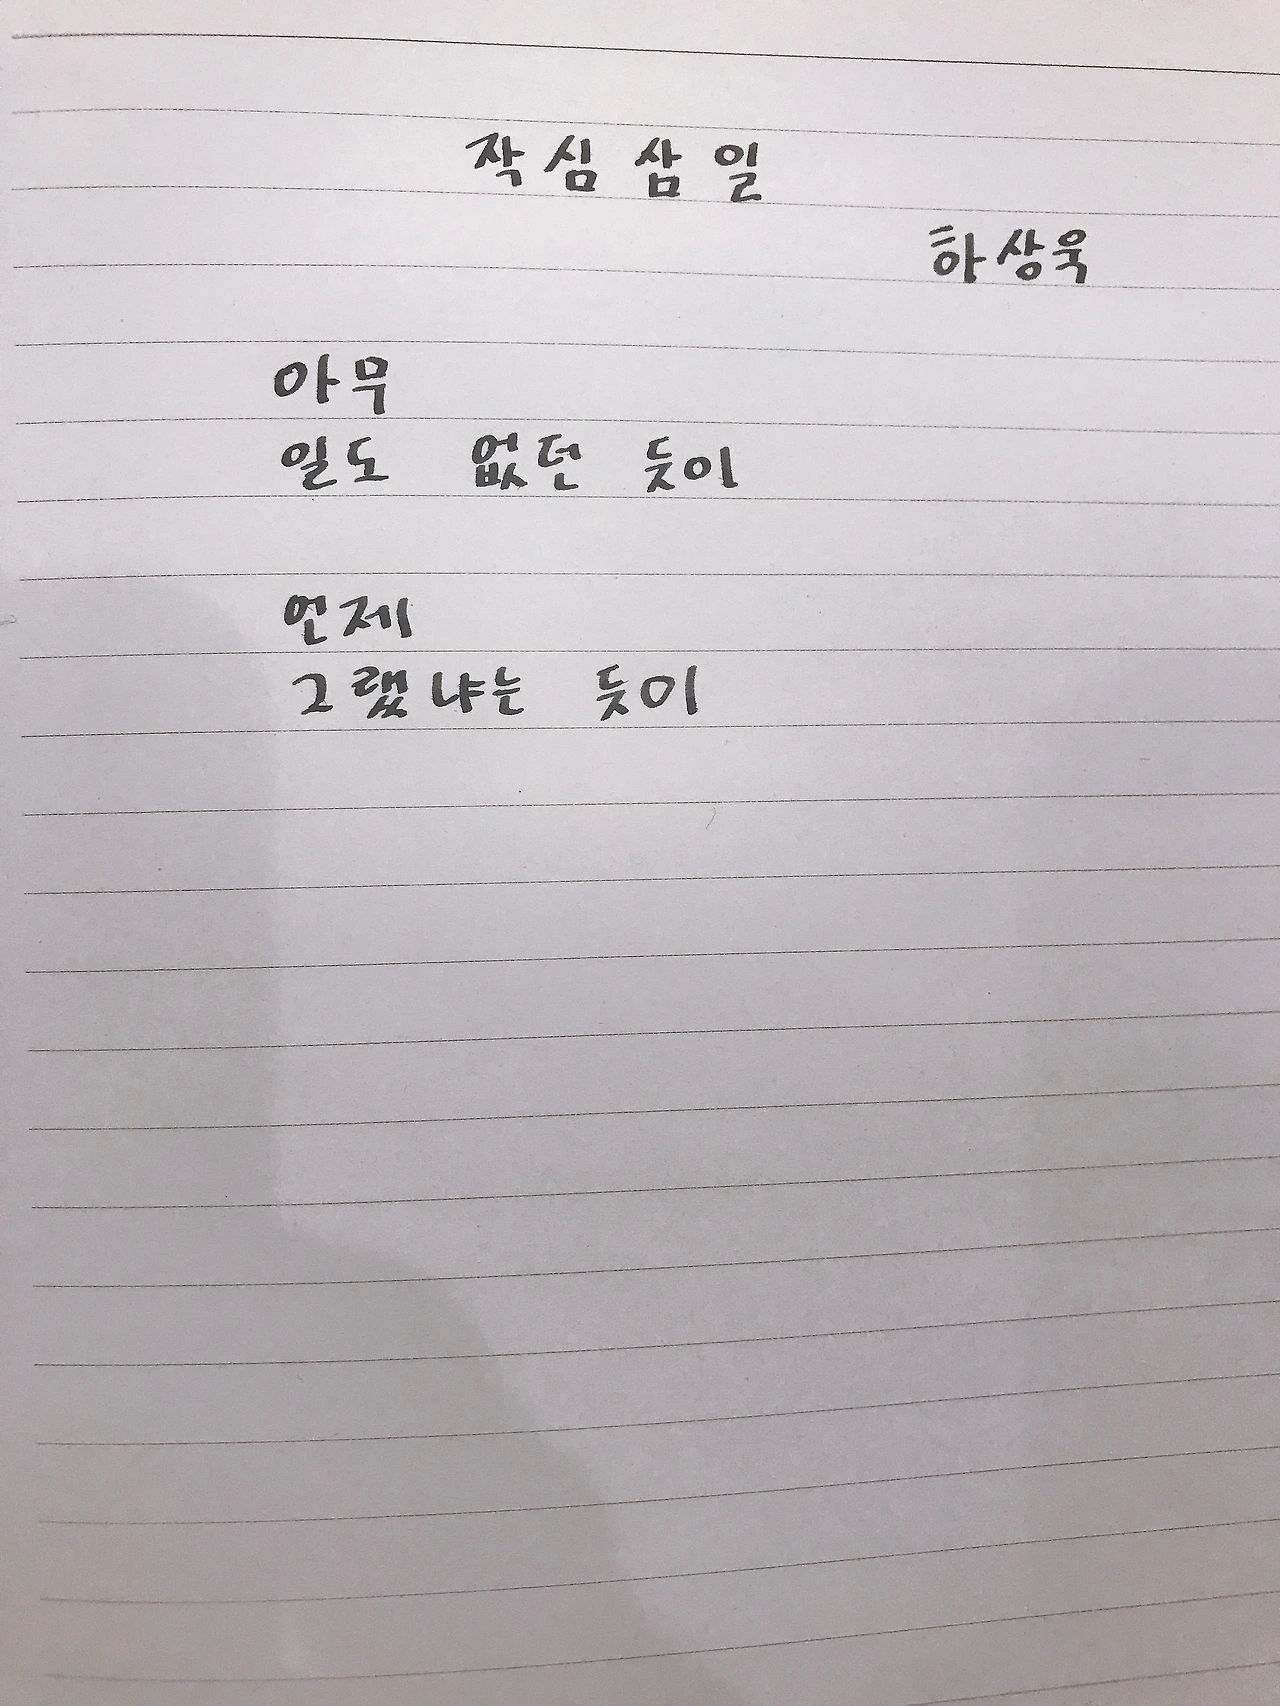 작심삼일
하상욱
아무
일도 없던 듯이
언제
그랬냐는 듯이